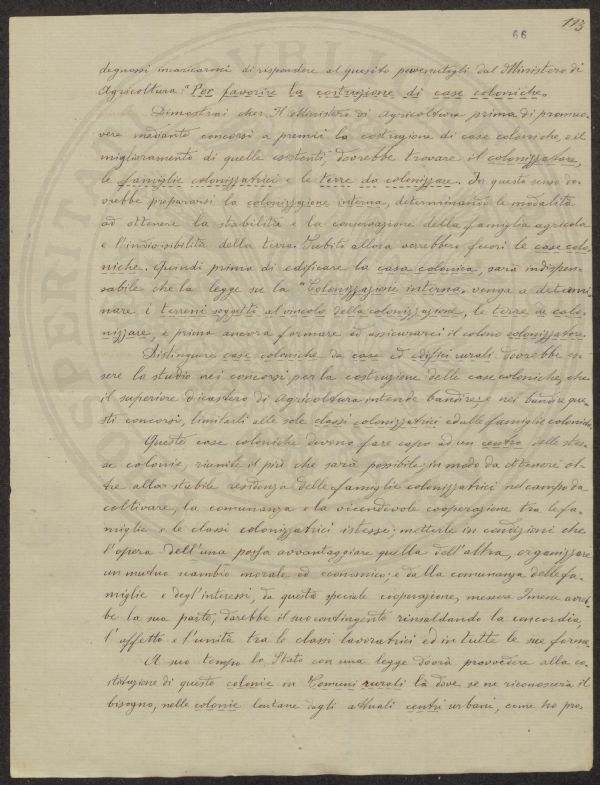 113
66
degnossi incaricarmi di rispondere al quesito pervenutogli dal Ministero di
Agricoltura "Per favorire la costruzione di case coloniche.
Dimostrai che: Il Ministero di Agricoltura prima di promuo-
vere mediante concorsi a premii la costruzione di case coloniche, o il
miglioramento di quelle esistenti, dovrebbe trovare il colonizzatore,
le famiglie colonizzatrici e le terre da colonizzare. In questo senso do-
vrebbe prepararsi la colonizzazione interna, determinando le modalità
ad ottenere la stabilità e la conservazione della famiglia agricola
e l'indivisibilità della terra. Subito allora verrebbero fuori le case colo-
niche. Quindi prima di edificare la casa colonica, sarà indispen-
sabile che la legge su la "Colonizzazione interna, venga a determi-
nare i terreni soggetti al vincolo della colonizzazione, le terre da colo-
nizzare, e prima ancora formare ed assicurarci il colono colonizzatore.
Distinguere case coloniche da case ed edifici rurali dovrebbe es-
sere lo studio nei concorsi per la costruzione delle case coloniche, che
il superiore dicastero di Agricoltura intende bandire; e nel bandire que-
sti concorsi, limitarli alle sole classi colonizzatrici ed alle famiglie coloniche.
Queste case coloniche devono fare capo ad un centro, delle stes-
se colonie, riunite il più che sarà possibile; in modo da ottenere ol-
tre alla stabile residenza delle famiglie colonizzatrici nel campo da
coltivare, la comunanza e la vicendevole cooperazione tra le fa-
miglie e le classi colonizzatrici istesse; metterle in condizioni che
l'opera dell'una possa avvantaggiare quella dell'altra, organizzare
un mutuo scambio morale ed economico; e dalla comunanza delle fa-
miglie e degl'interessi, da questa speciale cooperazione, mentre l'
be la sua parte, darebbe il suo contingente rinsaldando la concordia,
l'affetto e l'unità tra le classi lavoratrici ed in tutte le sue forme.
A suo tempo lo Stato con una legge dovrà provvedere alla co-
stituzione di queste colonie in Comuni rurali là dove se ne riconoscerà il
bisogno, nelle colonie lontane dagli attuali centri urbani, come ho pro-